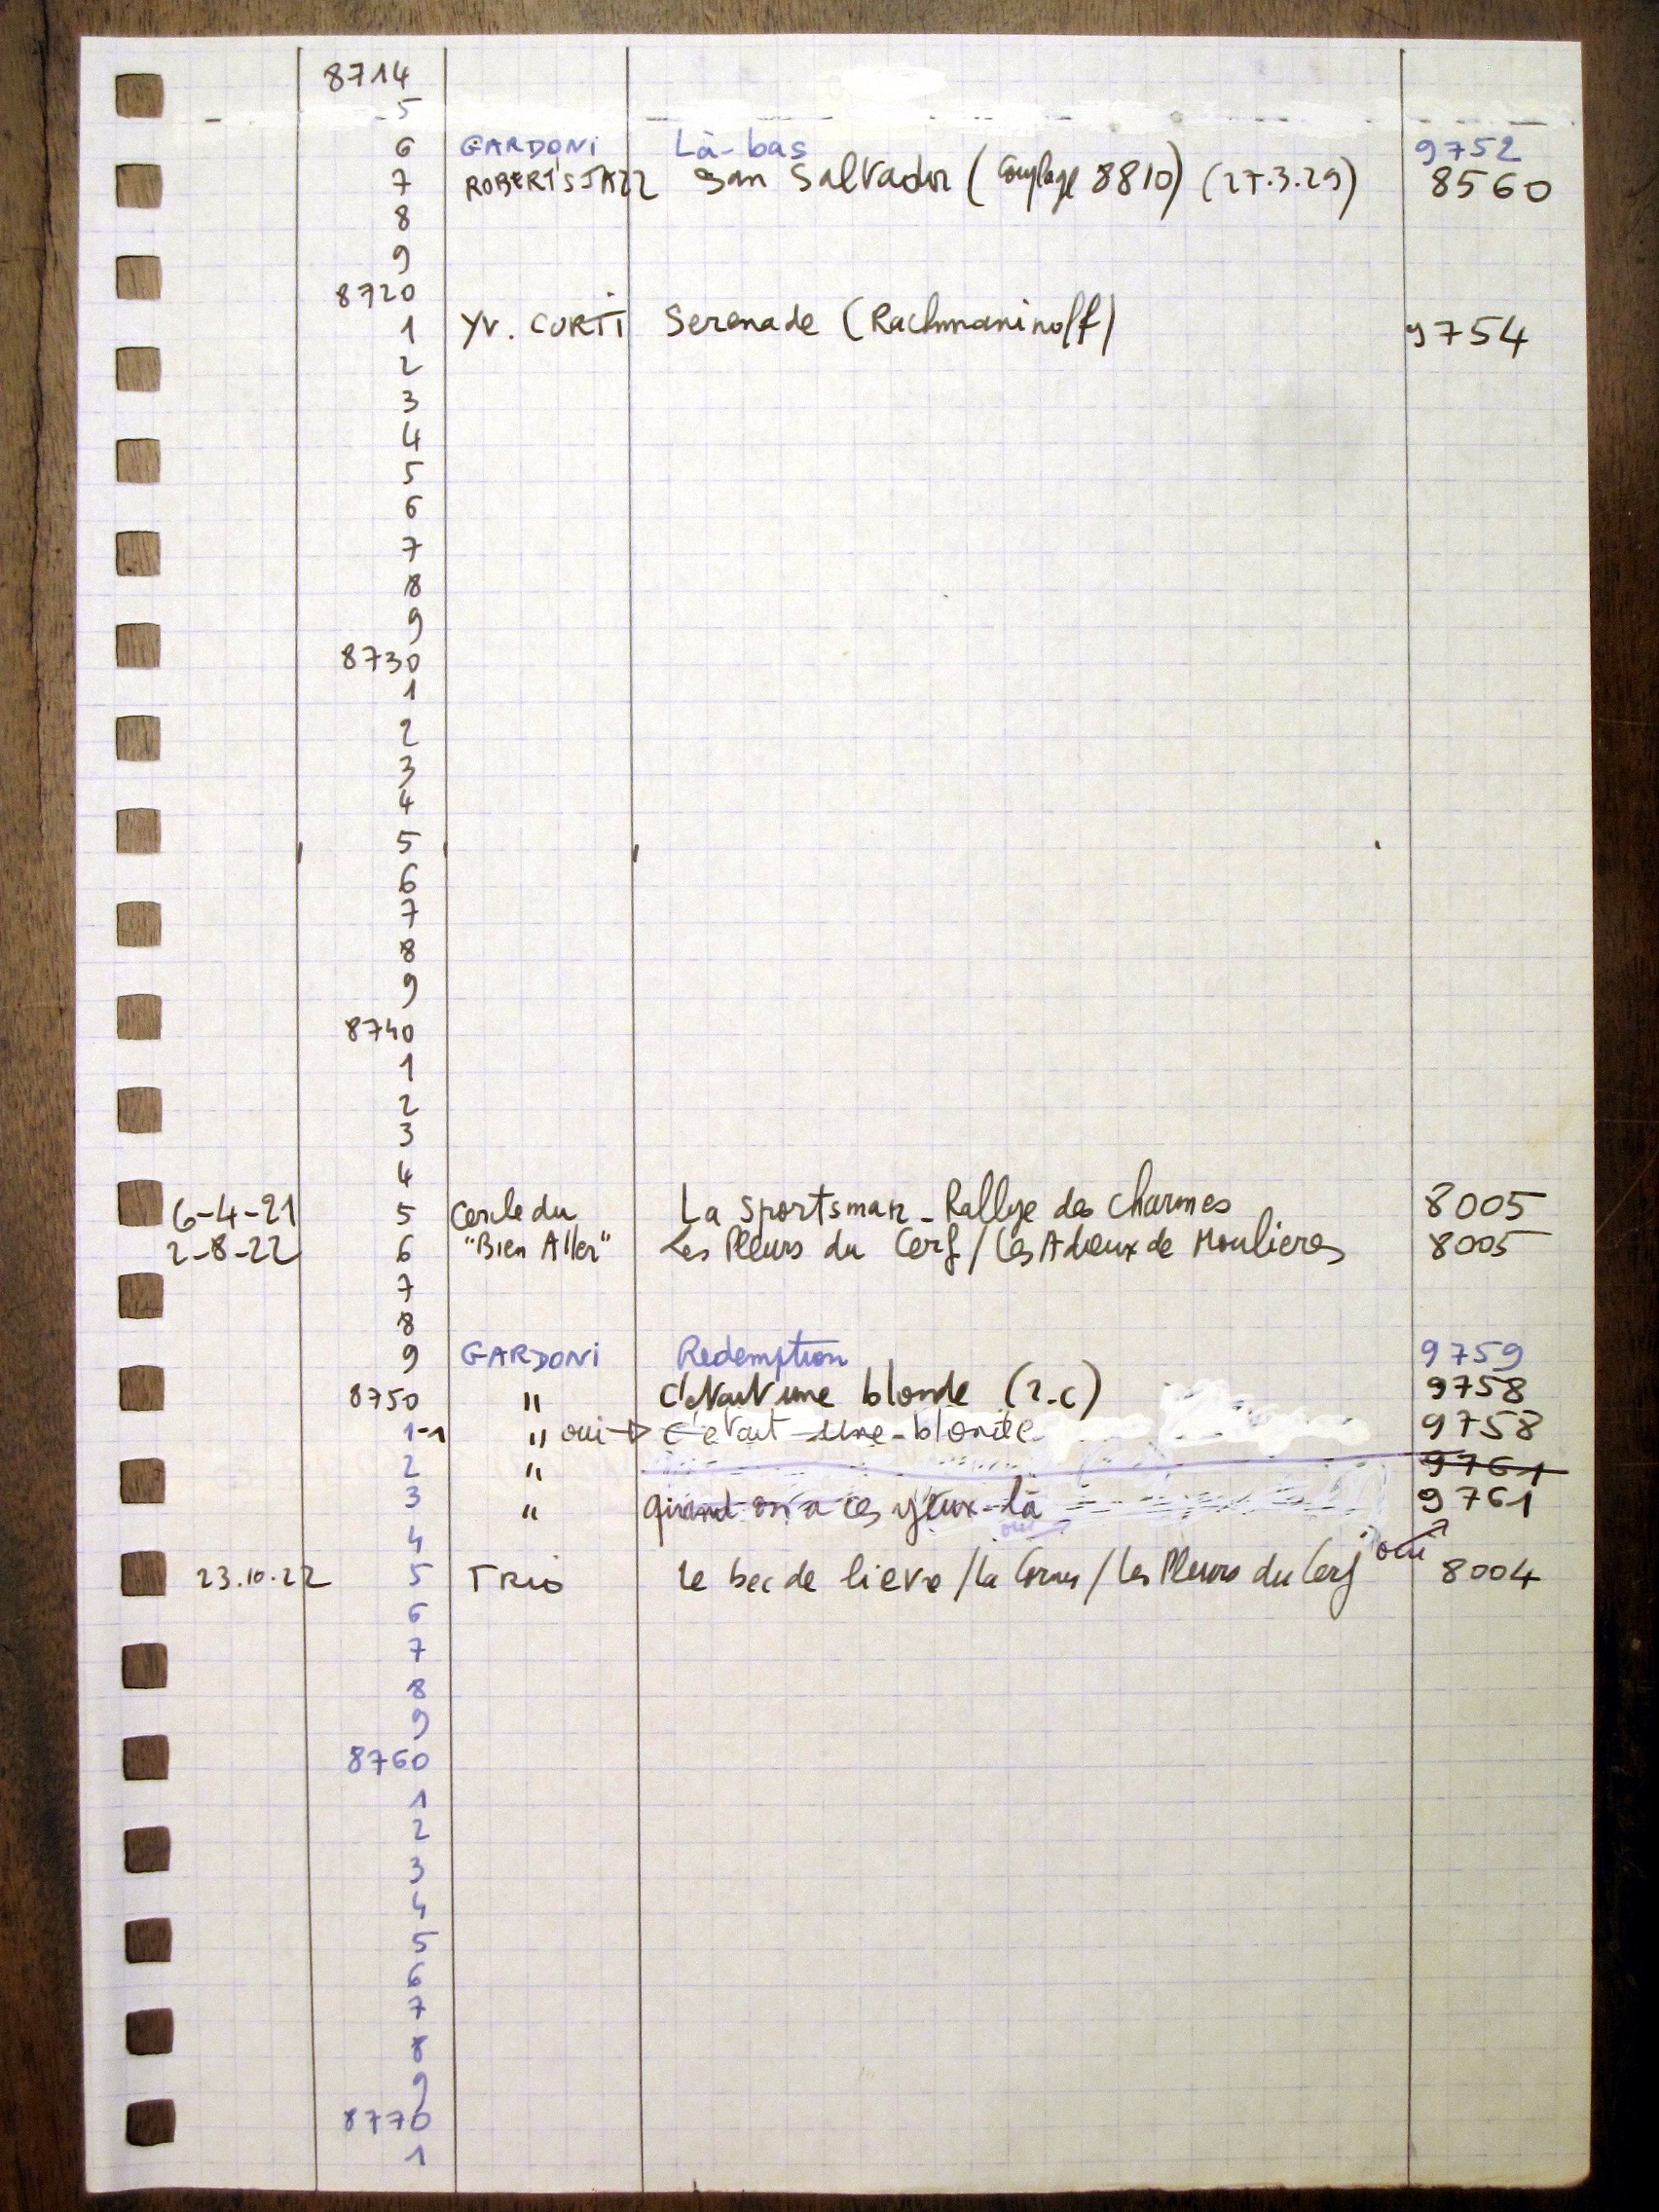 8714
5
6 GARDONI Là-bas 9752
7 ROBERT'S JAZZ San Salvador (Couplage 8810) (27.3.29) 8560
8
9
8720
1 YV. CURTI Serenade (Rachmaninoff) 9754
2
3
4
5
6
7
8
9
8730
1
2
3
4
5
6
7
8
9
8740
1
2
3
4
6-4-21 5 Cercle du La Sportsman - Rallye des Charmes 8005
2-8-22 6 "Bien Aller" Les Pleurs du Cerf / Les Adieux de Moulieres 8005
7
8
9 GARDONI Redemption 9759
8750 " C'etait une blonde (2.c) 9758
1-1 " oui → C'etait une blonde 9758
2 " 9761
3 " quand on a ces yeux-là 9761
oui
4
oui
23.10.22 5 TRIO Le bec de lievre / La / Les Pleurs du Cerf 8004
6
7
8
9
8760
1
2
3
4
5
6
7
8
9
8770
1